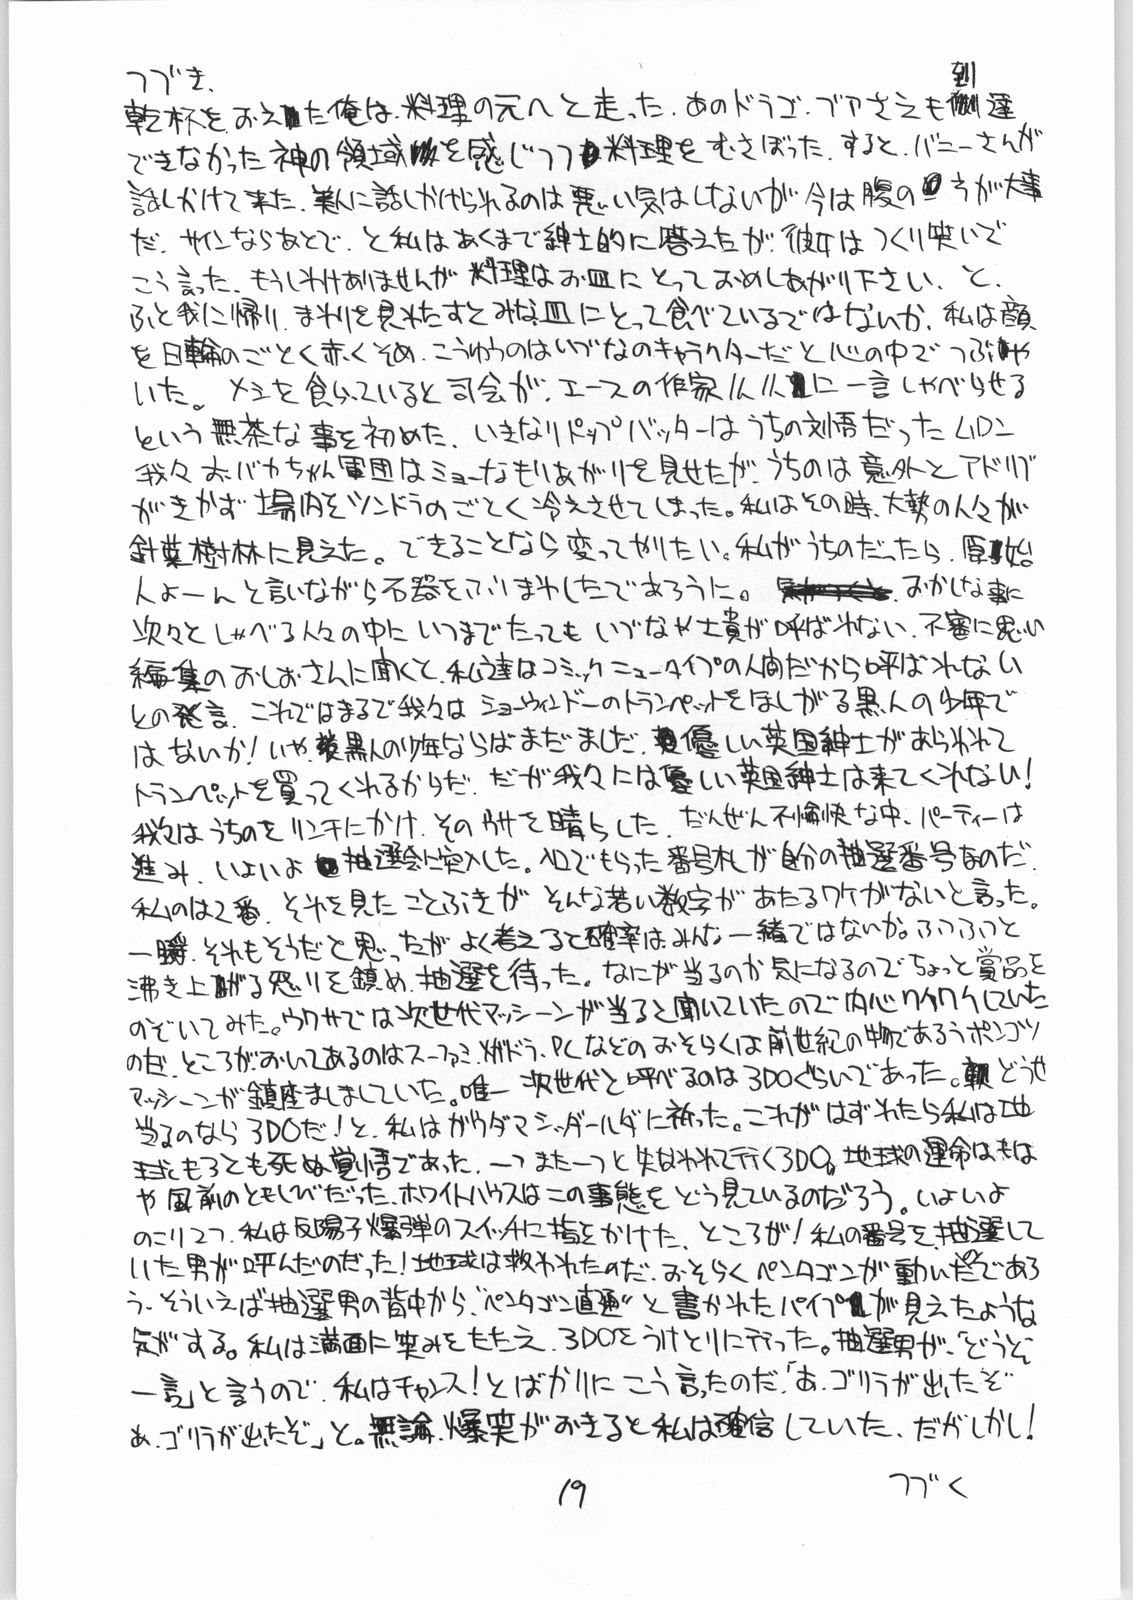 つづき、
乾杯をおえた俺は、料理の元へと走った、あのドラゴ・ブアさえも到達
できなかった神の領域を感じつつ料理をむさぼった、すると、バニーさんが
話しかけて来た、美人に話しかけられるのは悪い気はしないが今は腹の方が大事
だ、サインならあとで、と私はあくまで紳士的に答えたが、彼女はつくり笑いで
こう言った、もうしわけありませんが料理はお皿にとっておめしあがり下さい、と、
ふと我に帰り、まわりを見わたすとみな皿にとって食べているではないか、私は顔
を日輪のごとく赤くそめ、こうゆうのはいづなのキャラクターだと心の中でつぶや
いた。メシを食らっていると司会が、エースの作家人人に一言しゃべらせる
という無茶な事を初めた、いきなりトップバッターはうちの刘悟だったムロン
我々おバカちゃん軍団はミョーなもりあがりを見せたが、うちのは意外とアドリブ
がきかず場内をツンドラのごとく冷えさせてしまった。私はその時、大勢の人々が
針葉樹林に見えた。できることなら変ってやりたい。私がうちのだったら、原始
人よーんと言いながら石器をふりまわしたであろうに。おかしな事に
次々としゃべる人々の中にいつまでたってもいづなや士貴が呼ばれない、不審に思い
編集のおしおさんに聞くと、私達はコミックニュータイプの人間だから呼ばれない
との発言、これではまるで我々はショーウィンドーのトランペットをほしがる黒人の少年で
はないか！いや、黒人の少年ならばまだましだ、優しい英国紳士があらわれて
トランペットを買ってくれるからだ、だが我々には優しい英国紳士は来てくれない！
我々はうちのをリンチにかけ、そのウサを晴らした、だんぜん不愉快な中、パーティーは
進み、いよいよ抽選会に突入した。入口でもらった番号札が自分の抽選番号なのだ、
私のは2番、それを見たことぶきがそんな若い数字があたるワケがないと言った。
一瞬、それもそうだと思ったがよく考えると確率はみんな一緒ではないか。ふつふつと
沸き上がる怒りを鎮め、抽選を待った。なにが当るのか気になるのでちょっと賞品を
のぞいてみた。ウワサでは次世代マッシーンが当ると聞いていたので内心ワクワクしていた
のだ、ところが、おいてあるのはスーファミ、メガドラ、PCなどのおそらくは前世紀の物であろうポンコツ
マッシーンが鎮座ましましていた。唯一次世代と呼べるのは3DOぐらいであった。どうせ
当るのなら3DOだ！と、私はガウダマ・シッダールダに祈った。これがはずれたら私は地
球ともろとも死ぬ覚悟であった、一つまた一つと失なわれて行く3DO。地球の運命はもは
や風前のともしびだった、ホワイトハウスはこの事態をどう見ているのだろう。いよいよ
のこり2つ、私は反陽子爆弾のスイッチに指をかけた、ところが！私の番号を、抽選して
いた男が呼んだのだった！地球は救われたのだ、おそらくペンタゴンが動いたのであろ
う、そういえば抽選男の背中から、"ペンタゴン直通"と書かれたパイプが見えたような
気がする。私は満面に笑みをたたえ、3DOをうけとりに行った。抽選男が、「どうぞ
一言」と言うので、私はチャンス！とばかりにこう言ったのだ、「あ、ゴリラが出たぞ
あ、ゴリラが出たぞ」と。無論、爆笑がおきると私は確信していた、だがしかし！
つづく
19